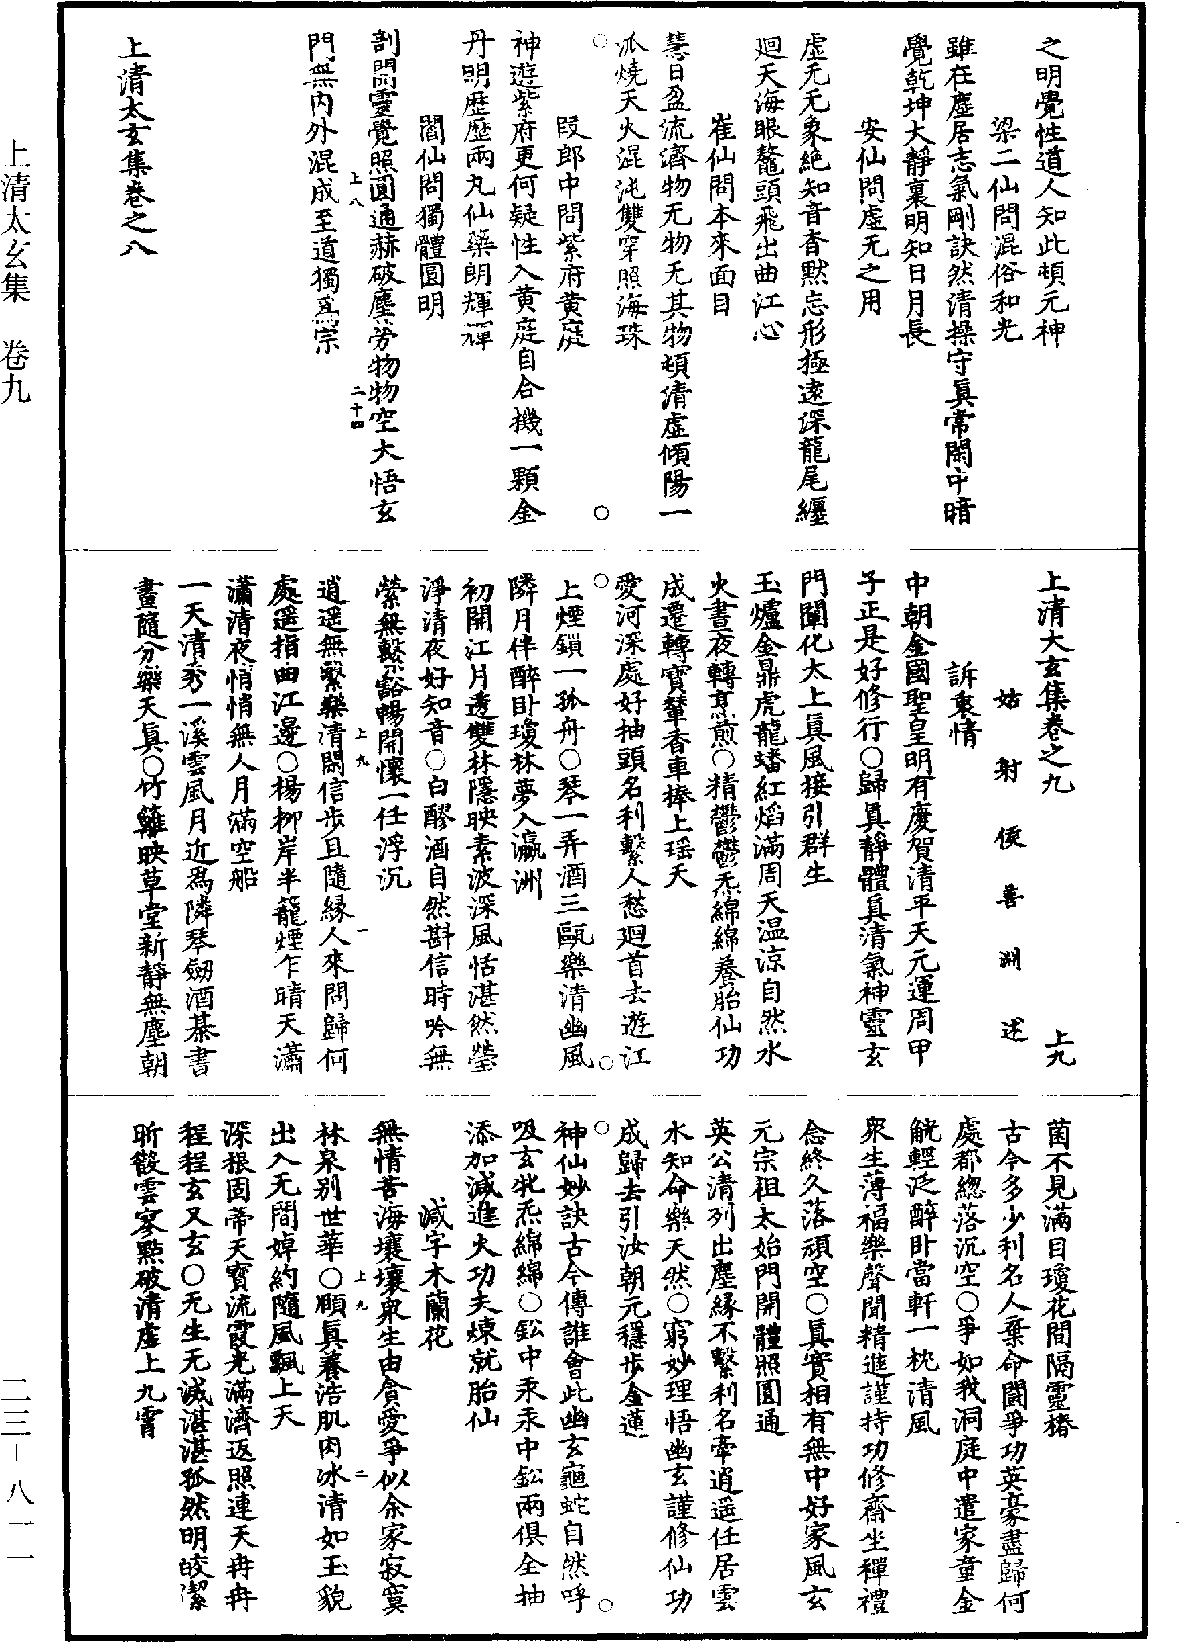 之明覺性道人知此頓元神
梁二仙問混俗和光
雖在塵居志氣剛訣然清操守眞常閑中暗
覺乾坤大靜裏明知日月長
安仙問虛无之用
虛无无象絶知音杳默忘形極遠深龍尾纏
廻天海眼鼇頭飛出曲江心
崔仙問本來面目
慧日盈流濟物无物无其物頓清虛傾陽一
派燒天火混沌雙穿照海珠
段郎中問紫府黄庭
神遊紫府更何疑性入黄庭自合機一顆金
丹明歷歷兩丸仙藥朗輝輝
閻仙問獨體圓明
剖開靈覺照圓通赫破塵勞物物空大悟玄
上八
二十四
門無內外混成至道獨爲宗
上清太玄集卷之八
上清大玄集卷之九
上九
姑射侯善淵述
訴衷情
中朝金國聖皇明有慶賀清平天元運周甲
子正是好修行○歸眞靜體眞清氣神靈玄
門闡化太上眞風接引群生
玉爐金鼎虎龍蟠紅焰滿周天温涼自然水
火晝夜轉烹煎○精鬱鬱炁綿綿養胎仙功
成遷轉寶輦香車捧上瑶天
愛河深處好抽頭名利繫人愁廻首去遊江
上煙鎖一孤舟○琴一弄酒三甌樂清幽風
隣月伴醉卧瓊林夢入瀛洲
初開江月透雙林隱映素波深風恬湛然瑩
淨清夜好知音○白醪酒自然斟信時吟無
縈無繫豁暢開懷一任浮沉
上九
一
逍遥無繫樂清閑信步且隨縁人來問歸何
處遥指曲江邊○楊柳岸半籠煙乍晴天瀟
瀟清夜悄悄無人月滿空船
一天清秀一溪雲風月近為隣琴劒酒棊書
畫隨分樂天眞○竹籬映草堂新靜無塵朝
菌不見滿目瓊花間隔靈椿
古今多少利名人棄命鬭爭功英豪盡歸何
處都緫落沉空○爭如我洞庭中遣家童金
觥輕泛醉卧當軒一枕清風
衆生薄福樂聲聞精進謹持功修齋坐禪禮
念終久落頑空○眞實相有無中好家風玄
元宗祖太始門開體照圓通
英公清列出塵緣不繫利名牽逍遥任居雲
水知命樂天然○窮妙理悟幽玄謹修仙功
成歸去引汝朝元穩步金蓮
神仙妙訣古今傳誰會此幽玄龜蛇自然呼
吸玄牝炁綿綿○鈆中汞汞中鈆兩俱全抽
添加減進火功夫煉就胎仙
減字木蘭花
無情苦海壤壤衆生由貪愛爭似余家寂寞
上九
二
林泉别世華○顚眞養浩肌肉冰清如玉貌
出入无間婥約隨風飄上天
深根固蒂天寶流霞光滿濟返照連天冉冉
程程玄又玄○无生无滅湛湛孤然明皎潔
昕骰雲寥點破清虛上九霄
上清太玄集　卷九
二三－八一一